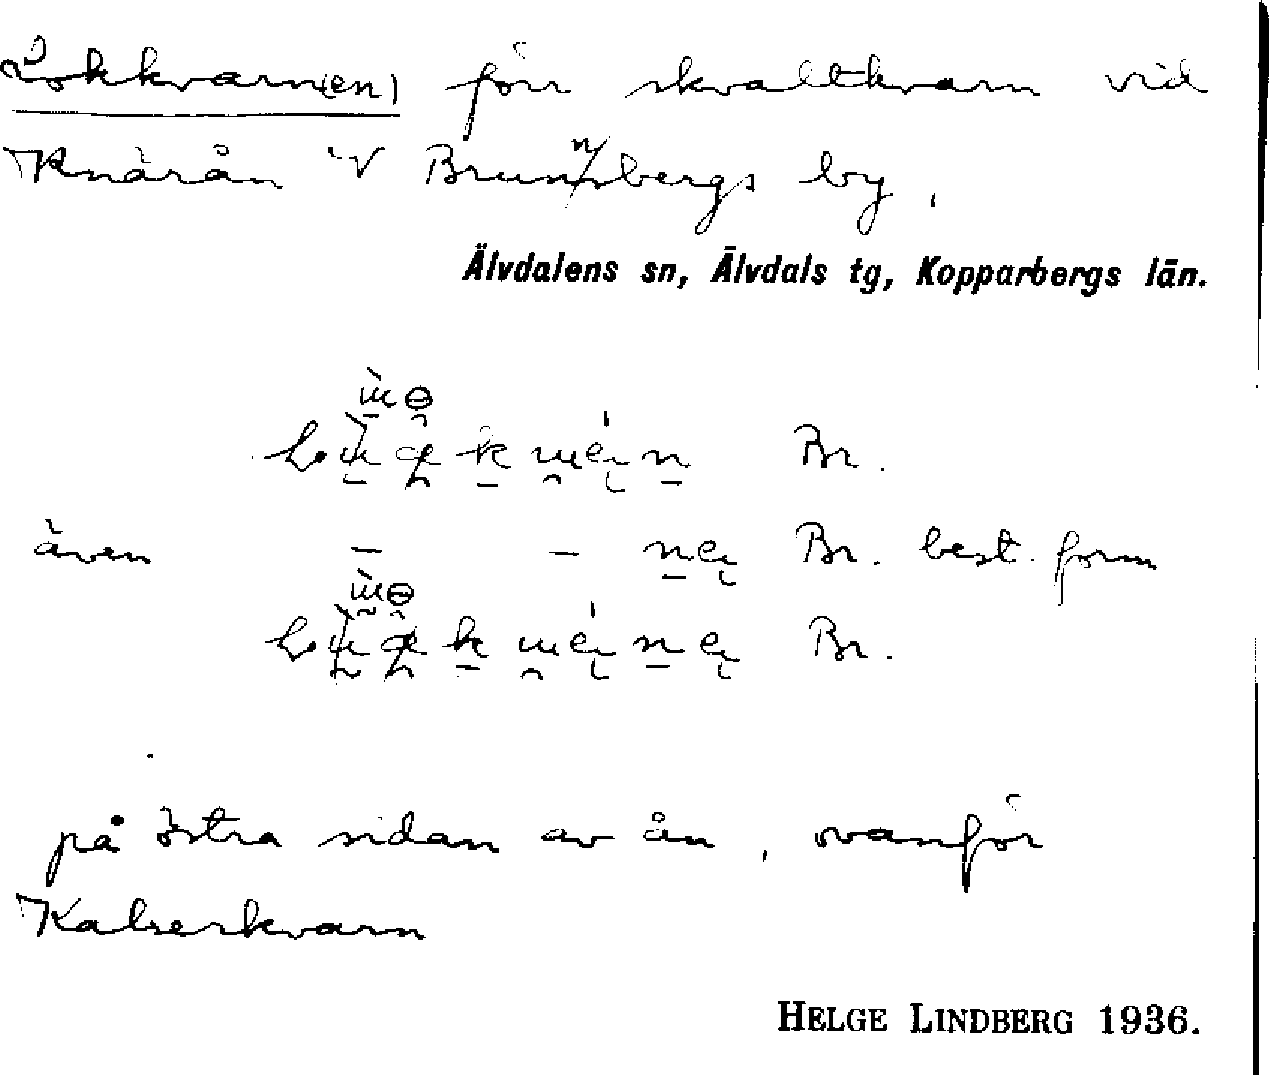 Lokkvarn(en) förr skvaltkvarn vid
Knärån V Brunnsbergs by.
Älvdalens sn, Älvdals tg, Kopparbergs län.
Br.
även – – Br. best. form
Br.
på östra sidan av ån, ovanför
Kalserkvarn
HELGE LINDBERG 1936.